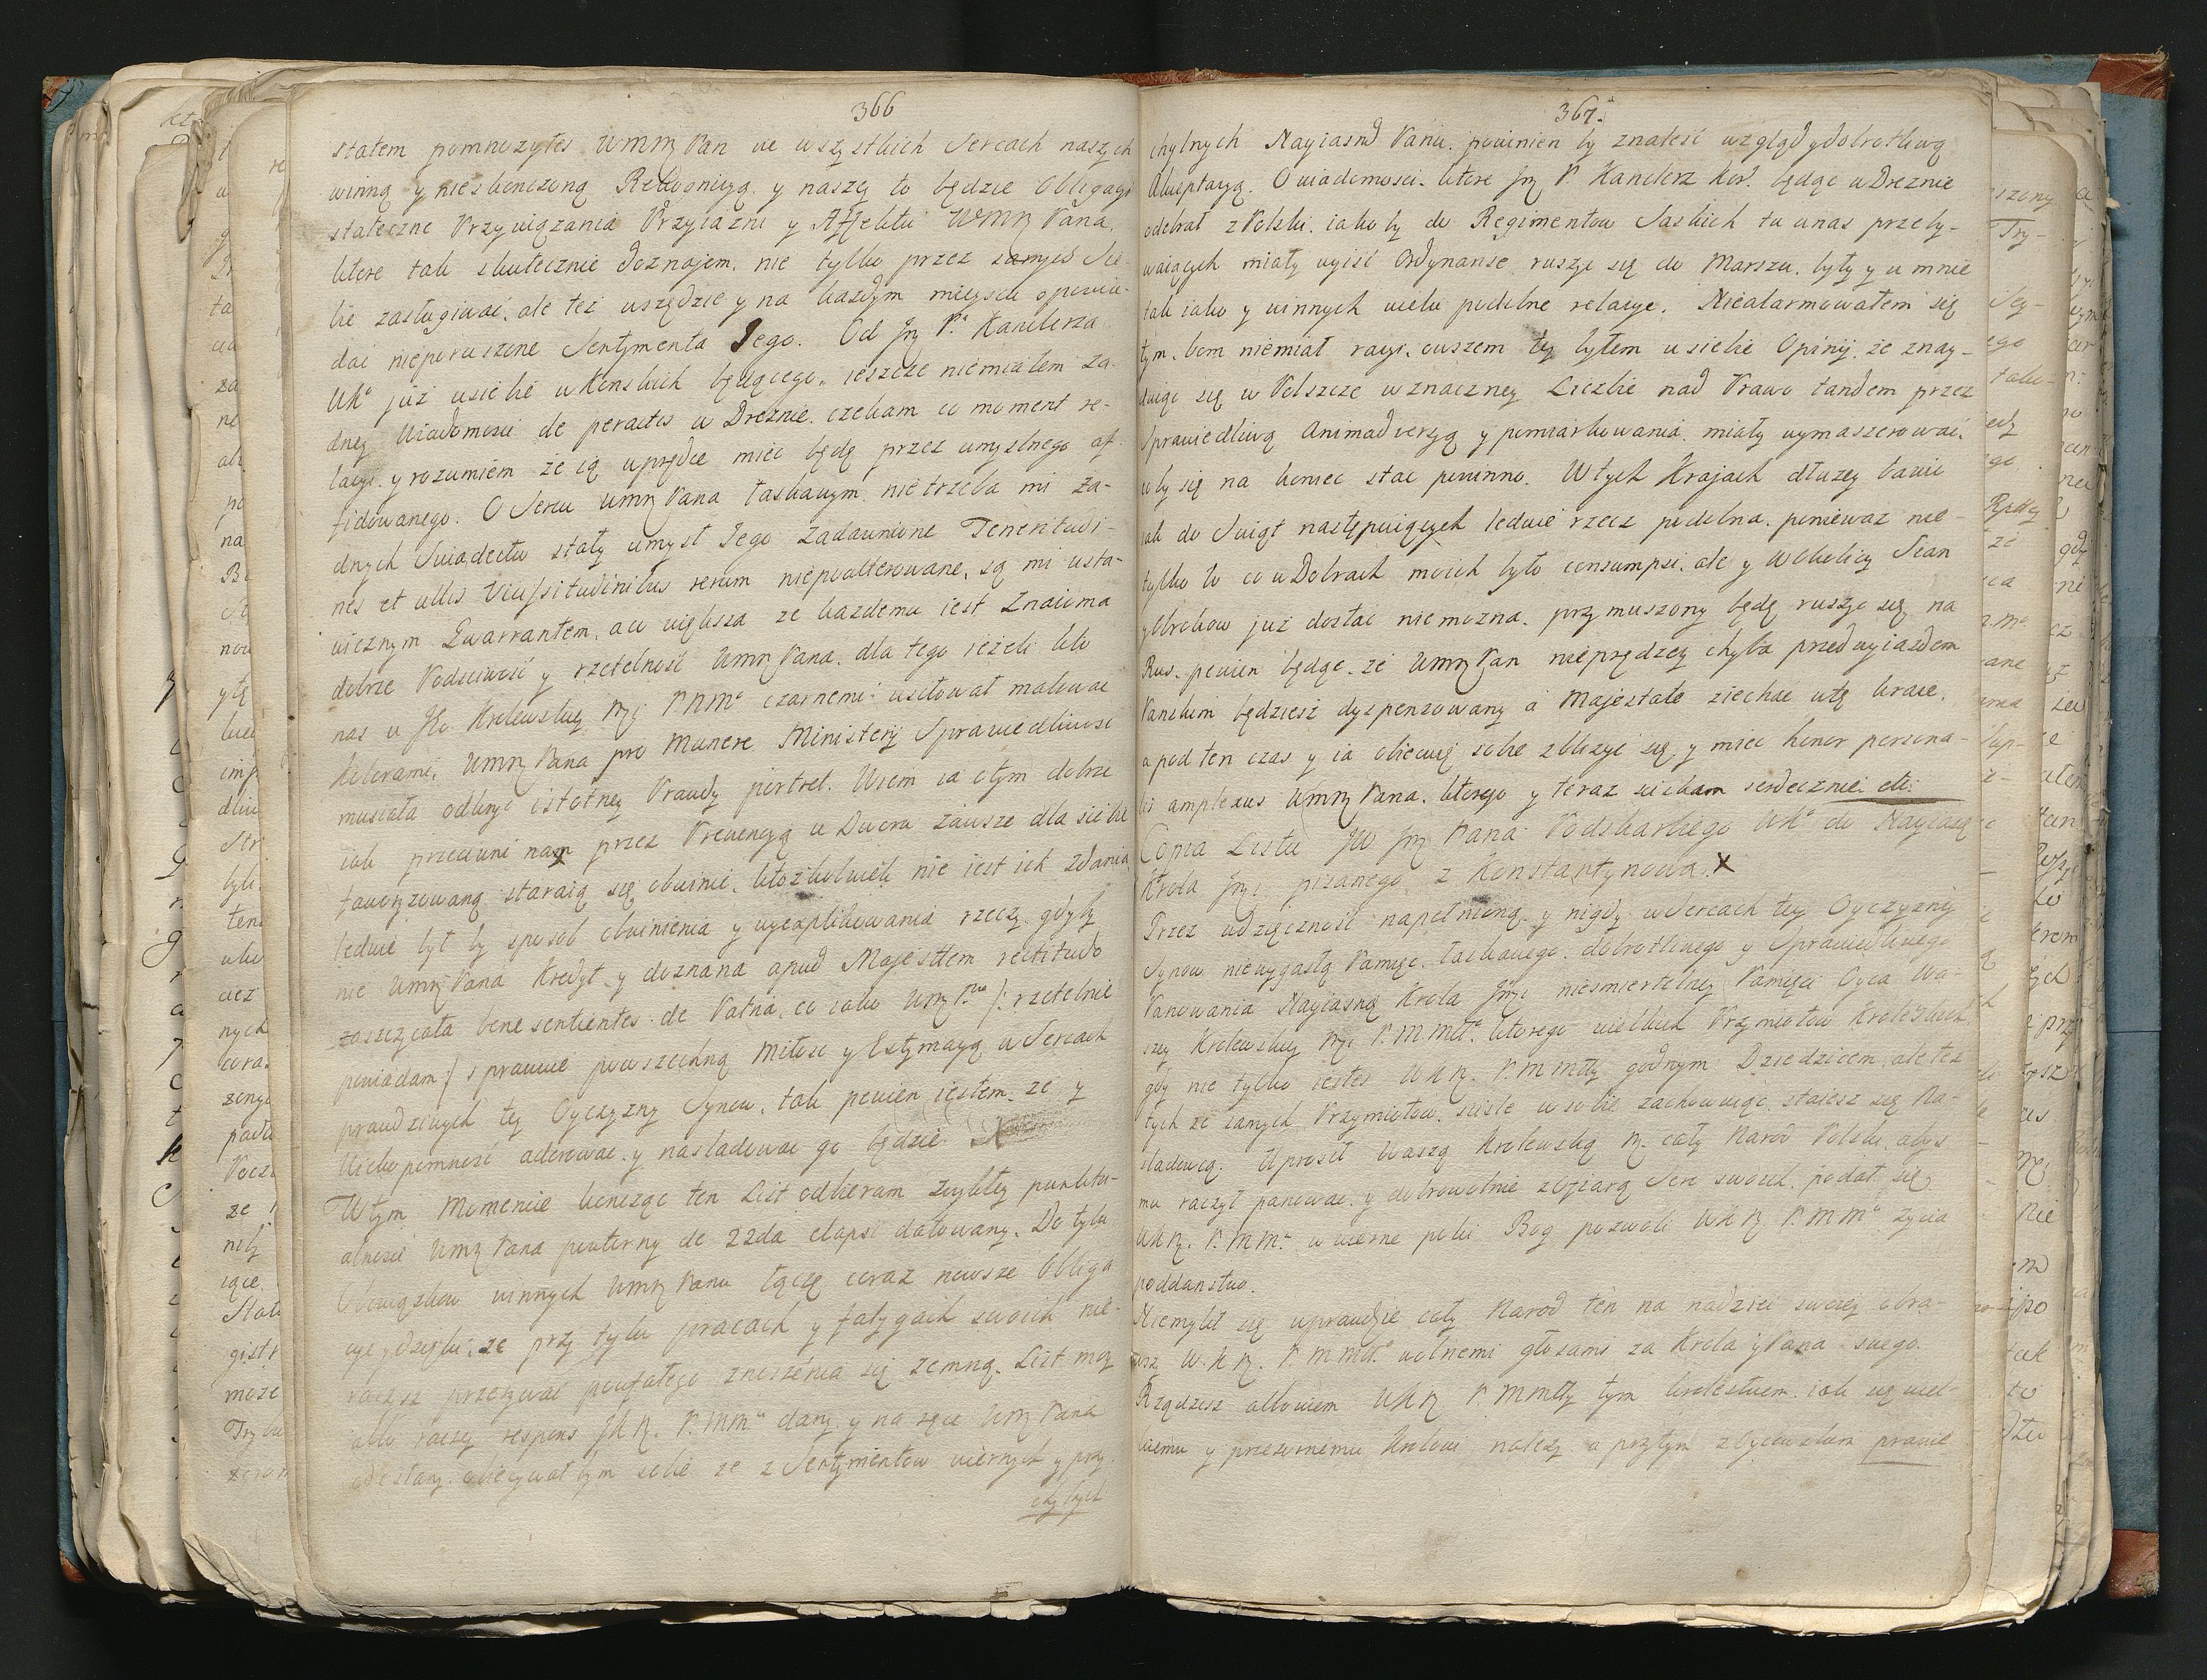 366
statem pomnozyłes WmmPan we wszystkich Sercach naszych
winną y nieskonczoną Rekognicyą y naszą to będzie Obligacyi
stateczne Przywiązania Przyiazni y Affektu WmmPana,
ktore tak skutecznie doznajem, nie tylko przez samych Sie-
bie zasługiwać, ale też wszędzie y na każdym mieyscu opowia-
dać nieporuszone Sentymenta Jego. Od Jm Pa Kanclerza
WKo już u siebie w Konskich będącego, ieszcze niemiałem ża-
dney Wiadomosci de peractis w Dreznie, czekam co moment re-
lacyi, y rozumiem że ią wprędce miec będę przez umyslnego af-
fidowanego. O Sercu WmmPana łaskawym nie trzeba mi ża-
dnych Swiadectw stały umysł Jego Zadawnione Teneritudi-
nes et ullis Vicissitudinibus rerum niepoalterowane, są mi usta-
wicznym Gwarrantem, a co większa że każdemu iest Znaioma
dobrze Podsciwość y rzetelność WmmPana, dla tego ieżeli kto
nas u JKo Krolewskiey Mci PNMo czarnemi usiłował malowac
Kolorami, WmmPana pro Munere Ministerij Sprawiedliwość
musiała odkryć istotney Prawdy portret. Wiem ia o tym dobrze
iak przeciwni nam przez Prewencyą u Dworu zawsze dla siebie
faworyzowaną staraią się obwinić, ktożkolwiek nie iest ich zdania
ledwie był by sposob obwinienia y wyexplikowania rzeczy, gdyby
nie WmmPana Kredyt y doznana apud Majestatem rectitudo
zaszczycała bene sentientes de Patria, co iako WmPnu /: rzetelnie
powiadam :/ sprawnie powszechną Miłosc y Estymacyą w Sercach
prawdziwych tey Oyczyzny Synow, tak pewien iestem, że y
Wiekopomność adorować y nasladować go będzie
W tym Momencie koncząc ten List odbieram zwykłey punktu-
alnosci WmmPana powtorny de 22da elapsi datowany. Do tylu
Obowiązkow winnych WmmPanu łączę coraz nowsze Obliga
cye y dzięki, że przy tylu pracach y fatygach swoich nie-
raczysz przerywać poufałego znoszenia się zemną. List moy
albo raczey respons JKM. P.MMu dany y na ręce WmPana
odesłany, obiecywał bym sobie że z Sentymentow wiernych y przy-
chylnych
367.
chylnych Nayiasnd Panu, powinien by znaleść wzgląd y dobrotliwą
Akceptacyą. O wiadomosci, ktore Jm P. Kanclerz Kor. będąc w Dreznie
odebrał z Polski, iakoby do Regimentow Saskich tu u nas przeby-
waiących miały wyiść Ordynanse ruszyć się do Marszu, były y u mnie
tak iako y w innych wielu podobne relacye. Niealarmowałem się
tym, bom niemiał racyi, owszem tey byłem u siebie Opinij, że znay-
duiąc się w Polszcze w znaczney Liczbie nad Prawo tandem przez
Sprawiedliwą Animadwersyą y pomiarkowania, miały wymaszerować,
co by się na koniec stać powinno. W tych Krajach dłużey bawić
iak do Swiąt następuiących ledwie rzecz podobna, ponieważ nie-
tylko to co w Dobrach moich było consumpsi, ale y w Okolicy Sian
y Obrokow już dostać niemożna, przymuszony będę ruszyć się na
Rus, pewien będąc, że WmmPan nieprędzey chyba przed wyiazdem
Panskim będziesz dyspensowany a Majestate ziechać w tę kraie,
a pod ten czas y ia obiecuię sobie zbliżyć się, y miec honor persona-
lis amplexus WmmPana, ktorego y teraz sciskam serdecznie etc:
Copia Listu JW Jm Pana Podskarbiego WKo do Nayiasn
Krola Jmci pisanego z Konstantynowa. X
Przez wdzięczność napełnioną, y nigdy w Sercach tey Oyczyzny
Synow niewygasłą Pamięć, łaskawego, dobrotliwego y Sprawiedliwego
Panowania Nayiasno Krola Jmci niesmiertelney Pamięci Oyca Wa-
szey Krolewskiey Mci P.MMiłł. ktorego wielkich Przymiotow Krolewskich
gdy nie tylko iestes WKM. P.MMiły godnym Dziedzicem, ale też
tych że samych Przymiotow scisle w sobie zachowuiąc, staiesz się Na-
sladowcą. Uprosił Waszą Krolewską M. cały Narod Polski, abys
mu raczył panować, y dobrowolnie z ofiarą Serc swoich, podał się
WKM. P.MMu w wierne poki Bog pozwoli WKM P.MMu życia
poddanstwo.
Niemylił się wprawdzie cały Narod ten na nadziei swoiey, obra-
wsz W.K.M. P.MMiłł wolnemi głosami za Krola y Pana swego.
Rządzisz albowiem WKM P.MMiły tym krolestwem iak się wiel-
kiemu y przezornemu Krolowi należy, a przytym z Oycowskim prawie